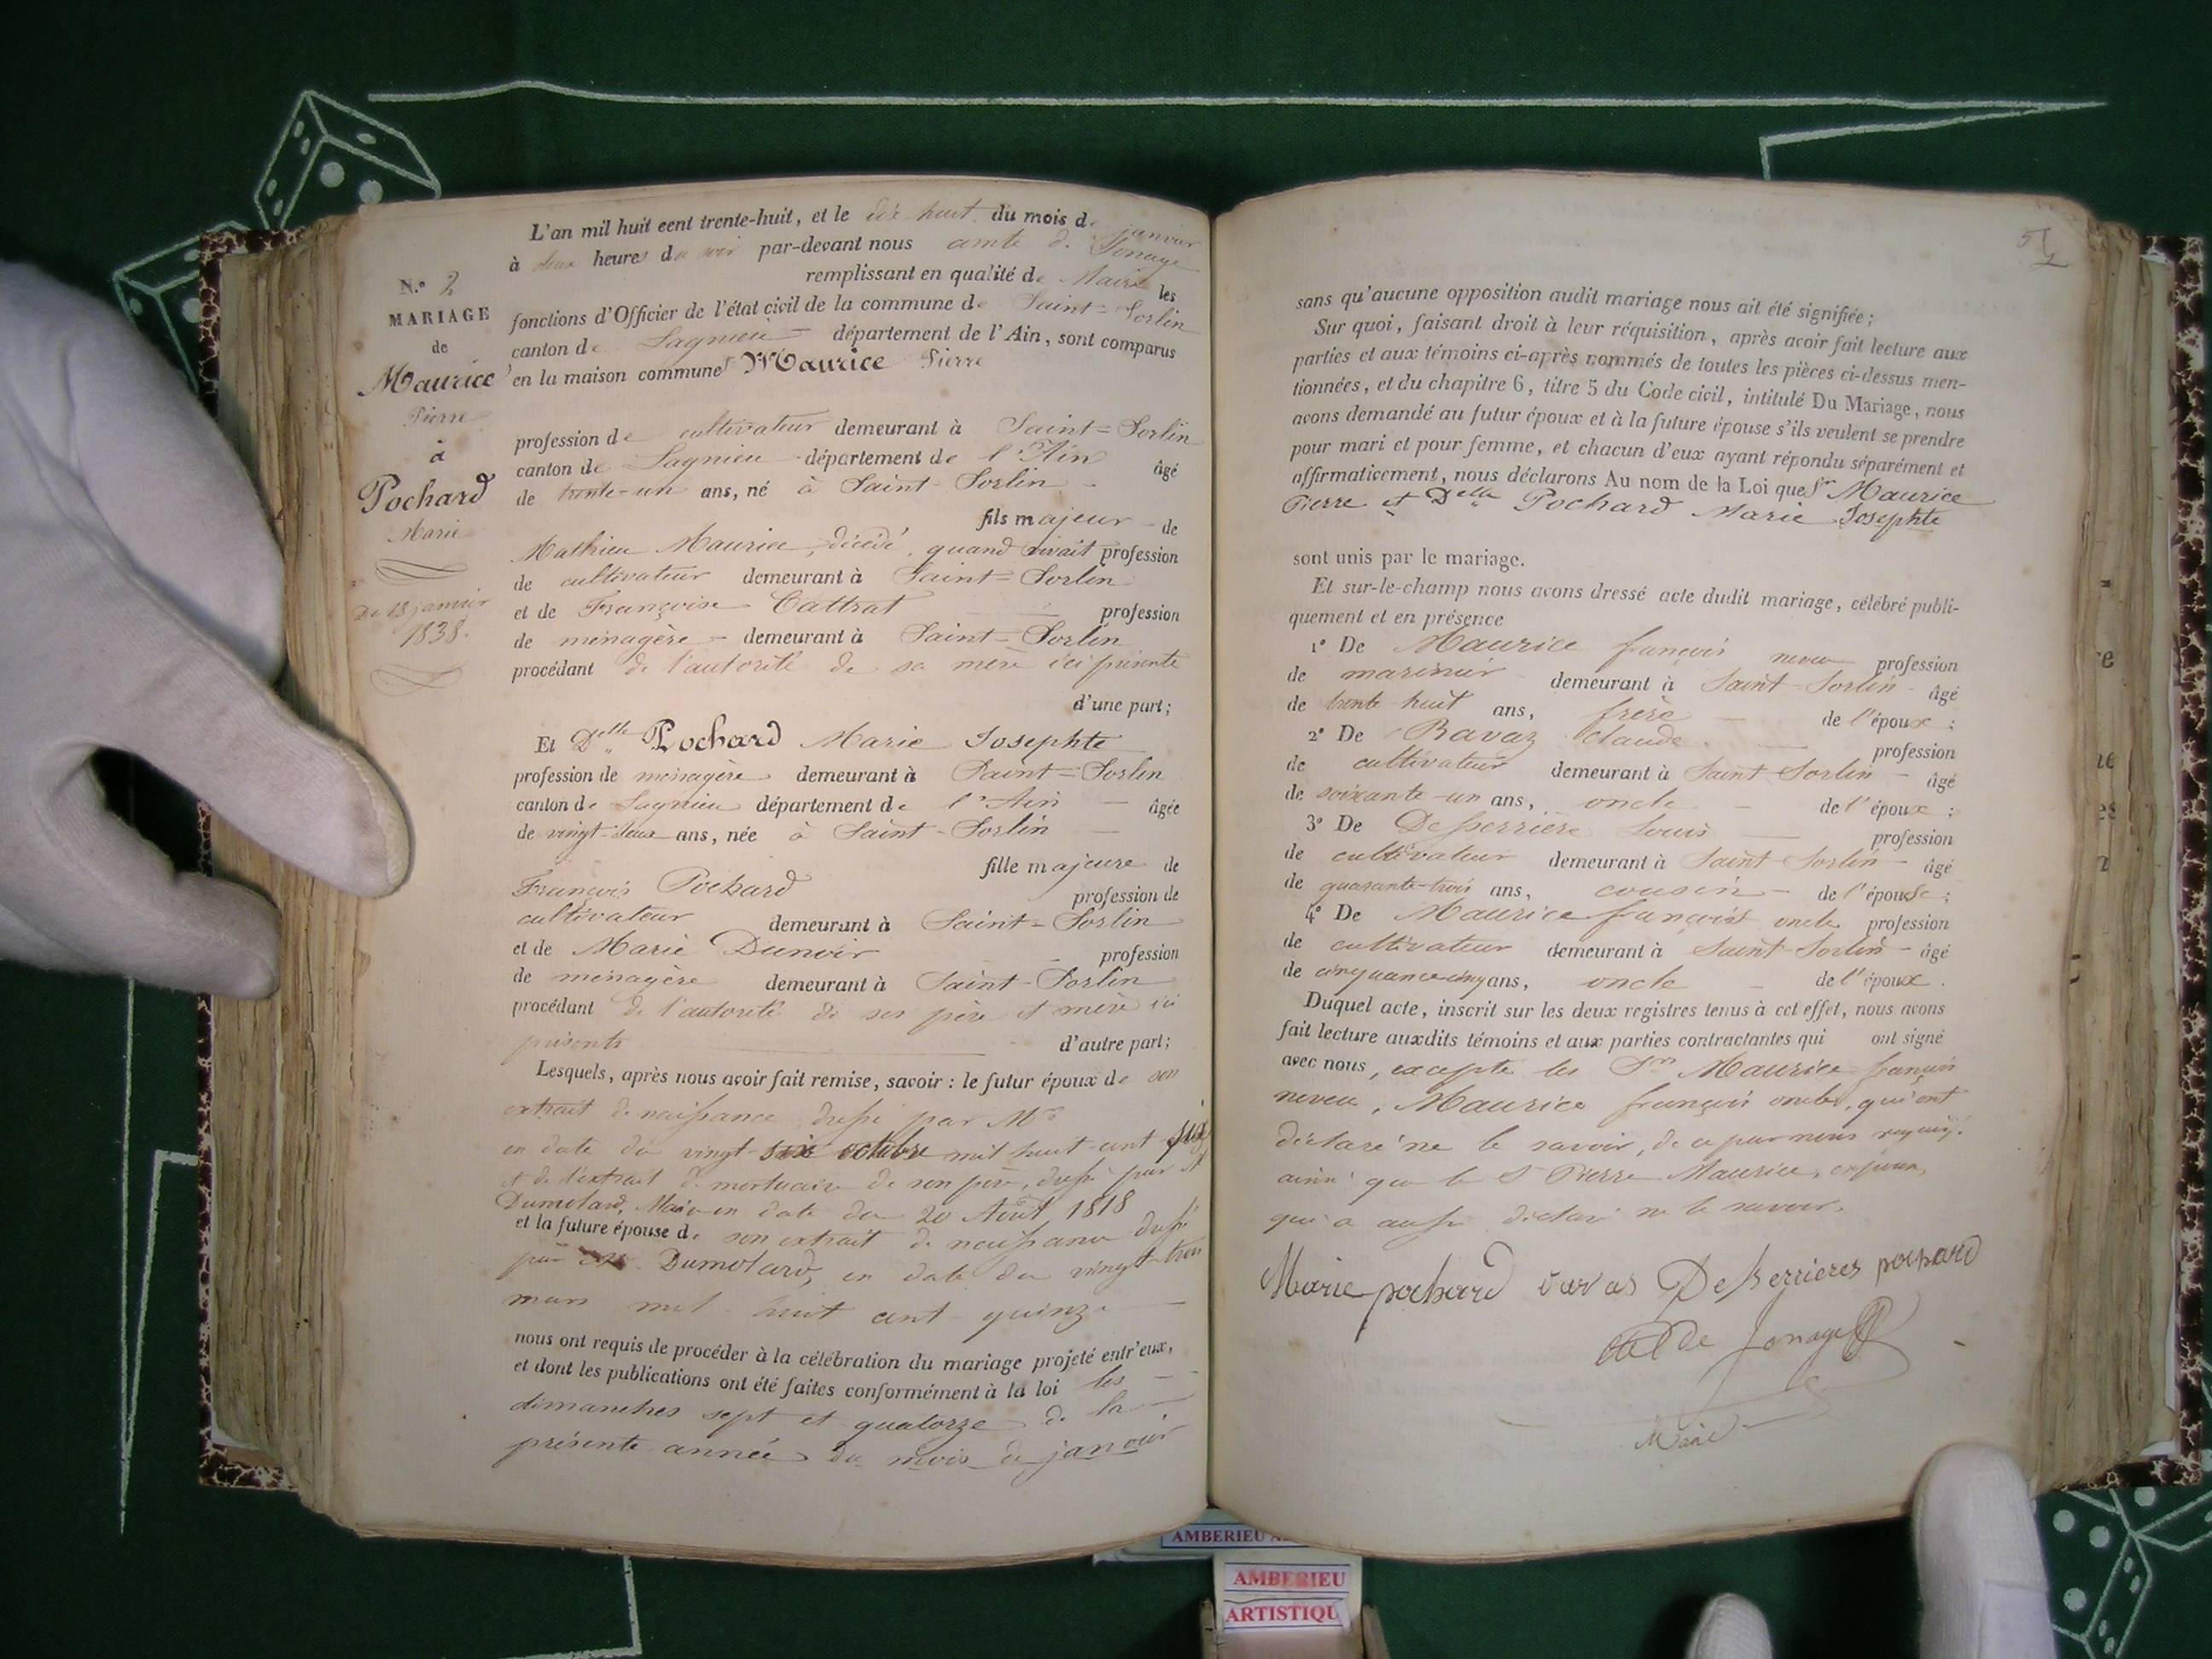 L'an mil huit cent trente-huit, et le dix huit du mois de janvier
à deux heures du soir par-devant nous amte de Jonage
remplissant en qualité de Maire les
fonctions d'Officier de l'état civil de la commune de Saint=Sorlin
canton de Lagnieu département de l'Ain, sont comparus
en la maison commune Maurice Pierre
profession de cultivateur demeurant à Saint=Sorlin
canton de Lagnieu département de l'Ain âgé
de trente-un ans, né à Saint-Sorlin
fils majeur de
Mathieu Maurice, décédé, quand vivait profession
de cultivateur demeurant à Saint=Sorlin
et de Françoise Cattrat profession
de ménagère demeurant à Saint-Sorlin
procédant de l'autorité de sa mère ici présente
d'une part;
Et Delle Pochard Marie Josephte
profession de ménagère demeurant à Saint=Sorlin
canton de Lagnieu département de l'Ain âgée
de vingt-deux ans, née à Saint-Sorlin
fille majeure de
François Pochard profession de
cultivateur demeurant à Saint-Sorlin
et de Marie Dunoir profession
de ménagère demeurant à Saint-Sorlin
procédant de l'autorité de ses père et mère ici
présents d'autre part;
Lesquels, après nous avoir fait remise, savoir: le futur époux de son
extrait de naissance dressé par Mr
en date du vingt-six octobre mil huit cent six
et de l'extrait de mortuaire de son père, dressé par Mr
Dumolard, Maire en date du 20 Août 1818
et la future épouse de son extrait de naissance dressé
par Mr Dumolard, en date du vingt-trois
mars mil huit cent quinze
nous ont requis de procéder à la célébration du mariage projeté entr'eux,
et dont les publications ont été faites conformément à la loi les
dimanches sept et quatorze de la
présente année du mois de janvier
N.° 2
MARIAGE
de
Maurice
Pierre
à
Pochard
Marie
Du 18 janvier
1838.
sans qu'aucune opposition audit mariage nous ait été signifiée;
Sur quoi, faisant droit à leur réquisition, après avoir fait lecture aux
parties et aux témoins ci-après nommés de toutes les pièces ci-dessus men-
tionnées, et du chapitre 6, titre 5 du Code civil, intitulé Du Mariage, nous
avons demandé au futur époux et à la future épouse s'ils veulent se prendre
pour mari et pour femme, et chacun d'eux ayant répondu séparément et
affirmativement, nous déclarons Au nom de la Loi que Sr Maurice
Pierre et Delle Pochard Marie Josephte
sont unis par le mariage.
Et sur-le-champ nous avons dressé acte dudit mariage, célébré publi-
quement et en présence
1° De Maurice françois neveu profession
de marinier demeurant à Saint-Sorlin âgé
de trente huit ans, frère de l'époux;
2° De Ravaz Claude profession
de cultivateur demeurant à Saint Sorlin âgé
de soixante-un ans, oncle de l'époux;
3° De Desserrière Louis profession
de cultivateur demeurant à Saint Sorlin âgé
de quarante-trois ans, cousin de l'épouse;
4° De Maurice françois oncle profession
de cultivateur demeurant à Saint-Sorlin âgé
de cinquante cinq ans, oncle de l'époux.
Duquel acte, inscrit sur les deux registres tenus à cet effet, nous avons
fait lecture auxdits témoins et aux parties contractantes qui ont signé
avec nous, excepté les Srs Maurice françois
neveu, Maurice françois oncle, qui ont
déclaré ne le savoir, de ce par nous requis.
ainsi que le S Pierre Maurice, époux,
qui a aussi déclaré ne le savoir.
Marie pochard Desserrieres pochard
de Jonage
Maire
AMBERIEU
AMBERIEU
ARTISTIQU